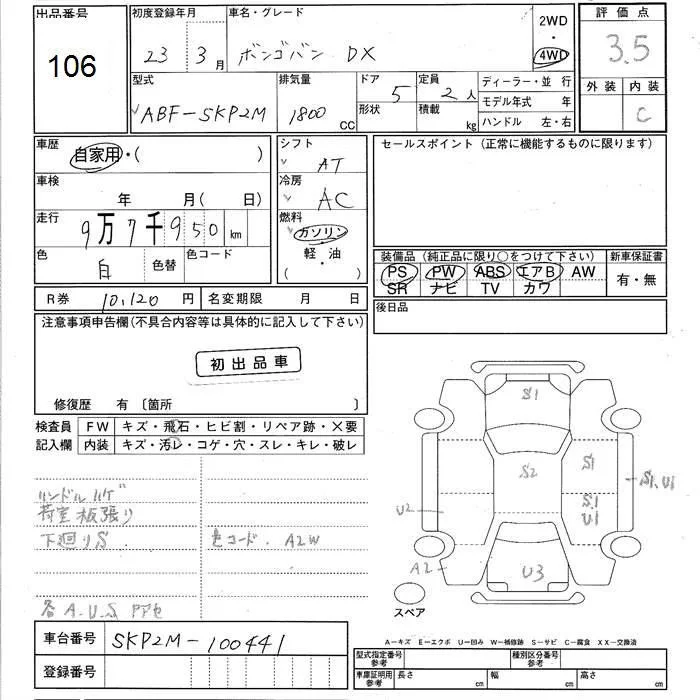 出品番号 初度登録年月 車名・グレード 2WD・4WD 評価点
106 23 3月 ボンゴバン DX 3.5
型式 排気量 ドア 定員 ディーラー・並行 外装 内装
ABF-SKP2M 1800cc 5 2人 モデル年式 年 C
形状 積載 kg ハンドル 左・右
車歴 自家用・( ) シフト AT セールスポイント (正常に機能するものに限ります)
車検 年 月(日) 冷房 AC
走行 9万7千950km 燃料 ガソリン
軽・油
( )
色 白 色替 色コード 装備品 (純正品に限り○をつけて下さい) 新車保証書
PS PW ABS エアB AW 有・無
SR ナビ TV カワ
R券 10,120円 名変期限 月 日 後日品
注意事項申告欄(不具合内容等は具体的に記入して下さい)
初出品車
修復歴 有 〔箇所 〕
検査員 FW キズ・飛石・ヒビ割・リペア跡・×要
記入欄 内装 キズ・汚レ・コゲ・穴・スレ・キレ・破レ
ハンドルハゲ
荷室板張り
下廻りS 色コード. A2W
各A.U.S
S1
S2
S1
S1
U1
S1.U1
U2
A2
U3
スペア
車台番号 SKP2M-100441
登録番号
A-キズ E-エクボ U-凹み W-補修跡 S-サビ C-腐食 XX-交換済
型式指定番号 参考 種別区分番号 参考
車庫証明用 参考 長さ cm 幅 cm 高さ cm